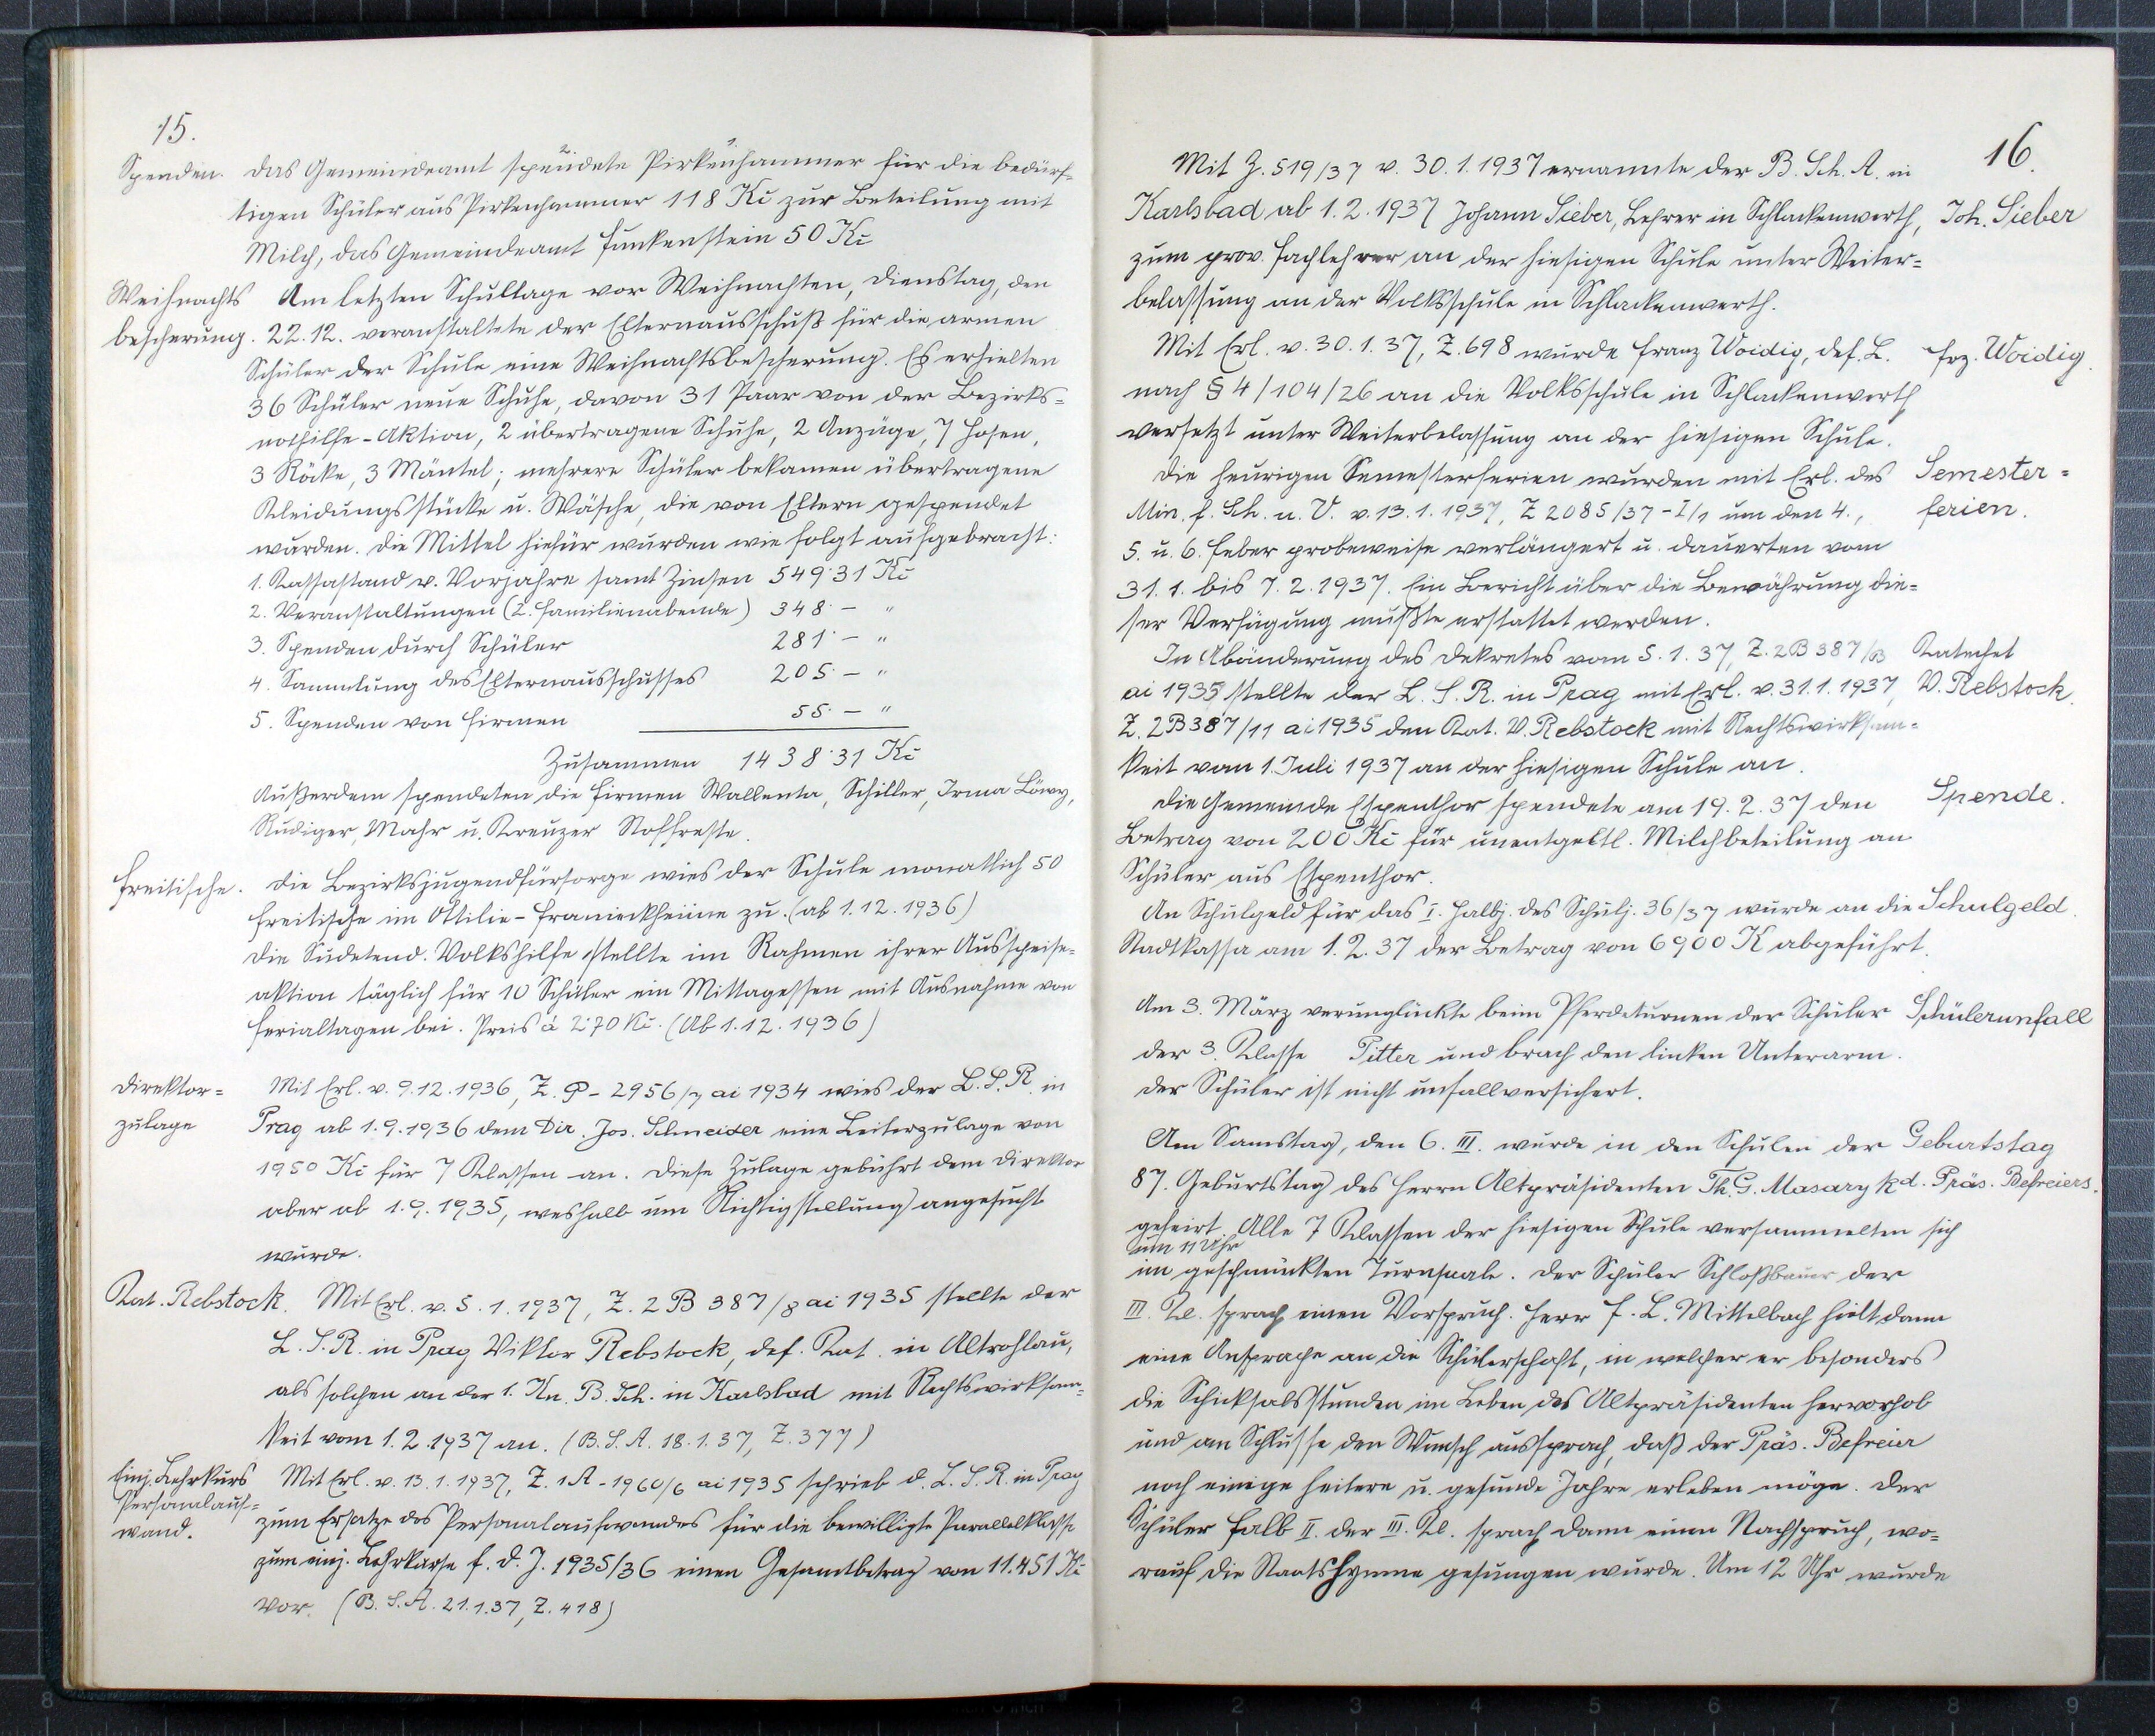 15.
Spenden. Das Gemeindeamt spendete Pirkenhammer für die bedürf-
tigen Schüler aus Pirkenhammer 118 Kč zur Beteilung mit
Milch, das Gemeindeamt Funkenstein 50 Kč
Weihnachts Am letzten Schultage vor Weihnachten, Dienstag, den
bescherung. 22.12. veranstaltete der Elternausschuß für die armen
Schüler der Schule eine Weihnachtsbescherung. Es erhielten
36 Schüler neue Schuhe, davon 31 Paar von der Bezirks-
nothilfe-Aktion, 2 übertragene Schuhe, 2 Anzüge, 7 Hosen,
3 Röcke, 3 Mäntel; mehrere Schüler bekamen übertragene
Kleidungsstücke u. Wäsche, die von Eltern gespendet
wurden. Die Mittel hiefür wurden wie folgt aufgebracht:
1. Kassastand v. Vorjahre samt Zinsen 549·31 Kč
2. Veranstaltungen (2. Familienabende) 348·— "
3. Spenden durch Schüler 281·— "
4. Sammlung des Elternausschusses 205·— "
5. Spenden von Firmen 55·— "
Zusammen 1438·31 Kč
Außerdem spendeten die Firmen Wallenta, Schiller, Irma Löwy,
Rudiger, Mahr u. Kreuzer Stoffreste.
Freitische. Die Bezirksjugendfürsorge wies der Schule monatlich 50
Freitische im Ottilie-Franieckheime zu. (ab 1.12.1936)
Die Sudetend. Volkshilfe stellte im Rahmen ihrer Ausspeise-
aktion täglich für 10 Schüler ein Mittagessen mit Ausnahme von
Ferialtagen bei. Preis à 2·70 Kč. (Ab 1.12.1936)
Direktor- Mit Erl. v. 9.12.1936, Z. P-2956/7 ai 1934 wies der L.S.R. in
zulage Prag ab 1.9.1936 dem Dir. Jos. Schneider eine Leiterzulage von
1950 Kč für 7 Klassen an. Diese Zulage gebührt dem Direktor
aber ab 1.9.1935, weshalb um Richtigstellung angesucht
wurde.
Kat. Rebstock. Mit Erl. v. 5.1.1937, Z. 2B 387/8 ai 1935 stellte der
L.S.R. in Prag Viktor Rebstock, def. Kat. in Altrohlau,
als solchen an der 1. Kn. B. Sch. in Karlsbad mit Rechtswirksam-
keit vom 1.2.1937 an. (B.S.A. 18.1.37, Z. 377)
Einj. Lehrkurs Mit Erl. v. 13.1.1937, Z. 1A-1960/6 ai 1935 schrieb d. L.S.R. in Prag
Personalauf-
wand. zum Ersatze des Personalaufwandes für die bewilligte Parallelklasse
zum einj. Lehrkurse f. d. J. 1935/36 einen Gesamtbetrag von 11.451 Kč
vor. (B.S.A. 21.1.37, Z. 418)
16.
Mit Z. 519/37 v. 30.1.1937 ernannte der B. Sch. A. in
Karlsbad ab 1.2.1937 Johann Sieber, Lehrer in Schlackenwerth, Joh. Sieber
zum prov. Fachlehrer an der hiesigen Schule unter Weiter-
belassung an der Volksschule in Schlackenwerth.
Mit Erl. v. 30.1.37, Z. 698 wurde Franz Woidig, def. L. Frz. Woidig.
nach § 4/104/26 an die Volksschule in Schlackenwerth
versetzt unter Weiterbelassung an der hiesigen Schule.
Die heurigen Semesterferien wurden mit Erl. des Semester-
Min. f. Sch. u. V. v. 13.1.1937, Z 2085/37-I/1 um den 4., ferien.
5. u. 6. Feber probeweise verlängert u. dauerten vom
31.1. bis 7.2.1937. Ein Bericht über die Bewährung die-
ser Verfügung mußte erstattet werden.
In Abänderung des Dekretes vom 5.1.37, Z. 2B 387/8 Katechet
ai 1935 stellte der L.S.R. in Prag mit Erl. v. 31.1.1937, V. Rebstock.
Z. 2B387/11 ai 1935 den Kat. V. Rebstock mit Rechtswirksam-
keit vom 1. Juli 1937 an der hiesigen Schule an.
Die Gemeinde Espenthor spendete am 19.2.37 den Spende.
Betrag von 200 Kč für unentgeltl. Milchbeteilung an
Schüler aus Espenthor.
An Schulgeld für das I. Halbj. des Schulj. 36/37 wurde an die Schulgeld.
Stadtkassa am 1.2.37 der Betrag von 6900 K abgeführt.
Am 3. März verunglückte beim Pferdeturnen der Schüler Schülerunfall
der 3. Klasse Pitter und brach den linken Unterarm.
Der Schüler ist nicht unfallversichert.
Am Samstag, den 6. III. wurde in den Schulen der Geburtstag
87. Geburtstag des Herrn Altpräsidenten Th. G. Masaryk d. Präs. Befreiers.
gefeiert. Alle 7 Klassen der hiesigen Schule versammelten sich
um 11 Uhr
im geschmückten Turnsaale. Der Schüler Schloßbauer der
III. Kl. sprach einen Vorspruch. Herr F. L. Mittelbach hielt dann
eine Ansprache an die Schülerschaft, in welcher er besonders
die Schicksalsstunden im Leben des Altpräsidenten hervorhob
und am Schlusse den Wunsch aussprach, daß der Präs. Befreier
noch einige heitere u. gesunde Jahre erleben möge. Der
Schüler Falb II. der III. Kl. sprach dann einen Nachspruch, wo-
rauf die Staatshymne gesungen wurde. Um 12 Uhr wurde